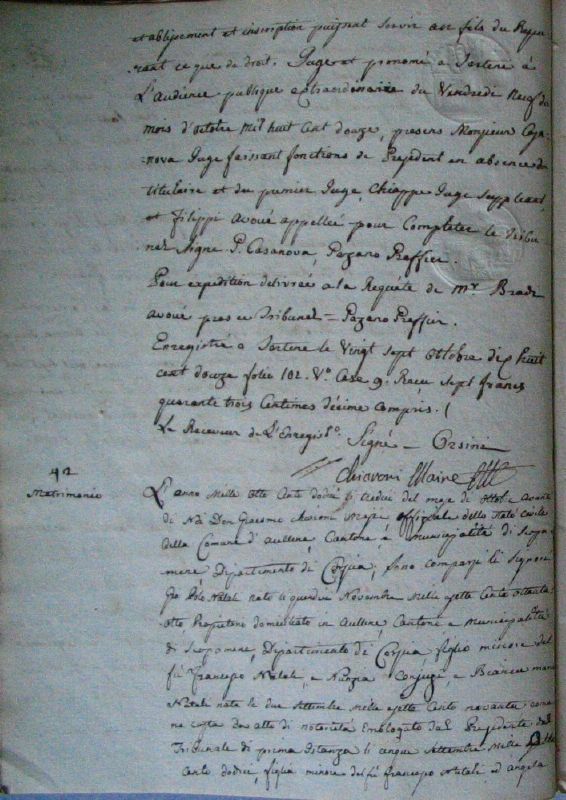 etablissement et inscription puissent servir au fils du Reque
rant ce que de droit. Jugé et prononcé a Sartene à
L'Audience publique extraordinaire du Vendredi Neuf du
mois d'octobre Mil huit Cent douze, presens Monsieur Casa
nova Juge faissant fonctions de President en absence du
titulaire et du premier Juge, Chiappe Juge Suppleant,
et Filippi avoué appellée pour Completer le Tribu
nal Signe P. Casanova, Pazano Greffier.
Pour expedition delivrée a la Requéte de Mr.
avoué pres ce Tribunal = Pazano Greffier.
Enregistré a Sartene le Vingt sept Ottobre dix huit
cent douze folio 102. Vo. Case 9. Recu sept francs
quarante trois Centimes décime compris. (
Le Receveur de L'Enregisto. Signé - Orsini
Chiaroni Maire
42
Matrimonio
L'anno Mille Otto Cento dodici li tredici del mese di Ottobe avanti
di Noi Don Giacomo Maire officiale dello Stato Civile
della Comune d'Aullene, Cantone e Municipalità di Serra
mere, Dipartimento di Corsica, sono comparsi li Signori
Gio Natali nato li quindici Novembre Mille Sette Cento Ottanta
otto Proprietario domiciliato in Aullene, Cantone e Municipalità
di, Dipartimento di Corsica figlio minore del
fù Francesco Natali, e Nunzia Conjugi e Bianca Maria
Natali nata li due Settembre Mille Sette Cento novanta come
ne costa da atto di notorietà Emologato dal Presidente del
Tribunale di prima istanza li cinque Settembre Mille Otto
Cento dodici, figlia minore del fù Francesco Natali ed Angela